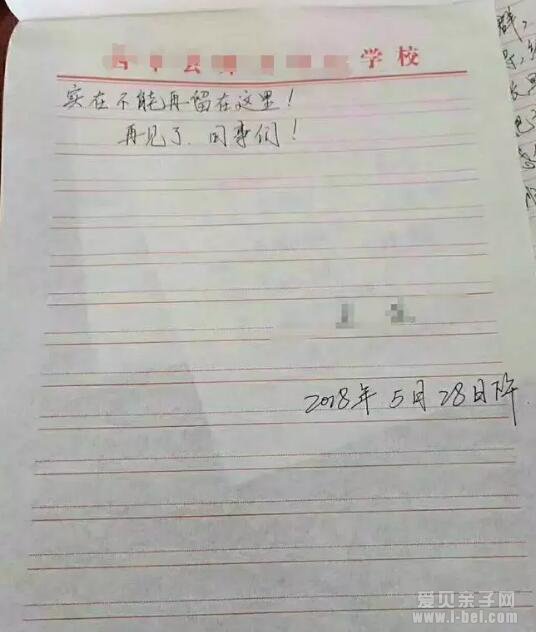 学校
实在不能再留在这里！
再见了.同事们！
2018年5月28日下午
爱贝亲子网
www.i-bei.com